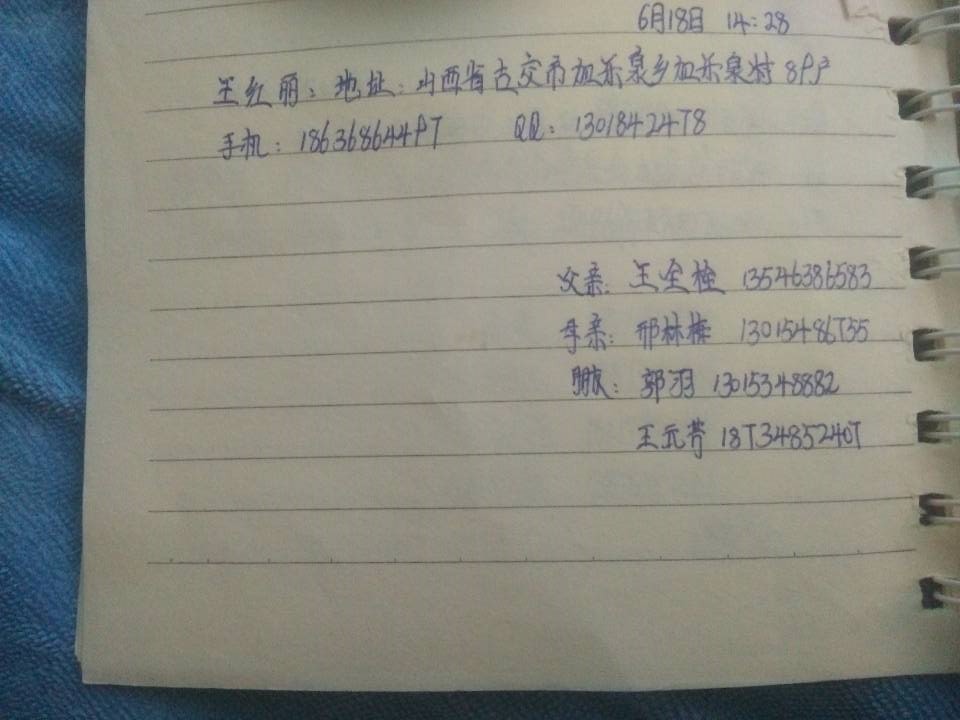 6月18日 14:28
王红丽：地址：山西省古交市加乐泉乡加乐泉村 89户
手机：18636864497 QQ：1301842478
父亲：王全栓 13546386583
母亲：邢林梅 13015486755
朋友：郭羽 13015348882
王元芳 18734852407